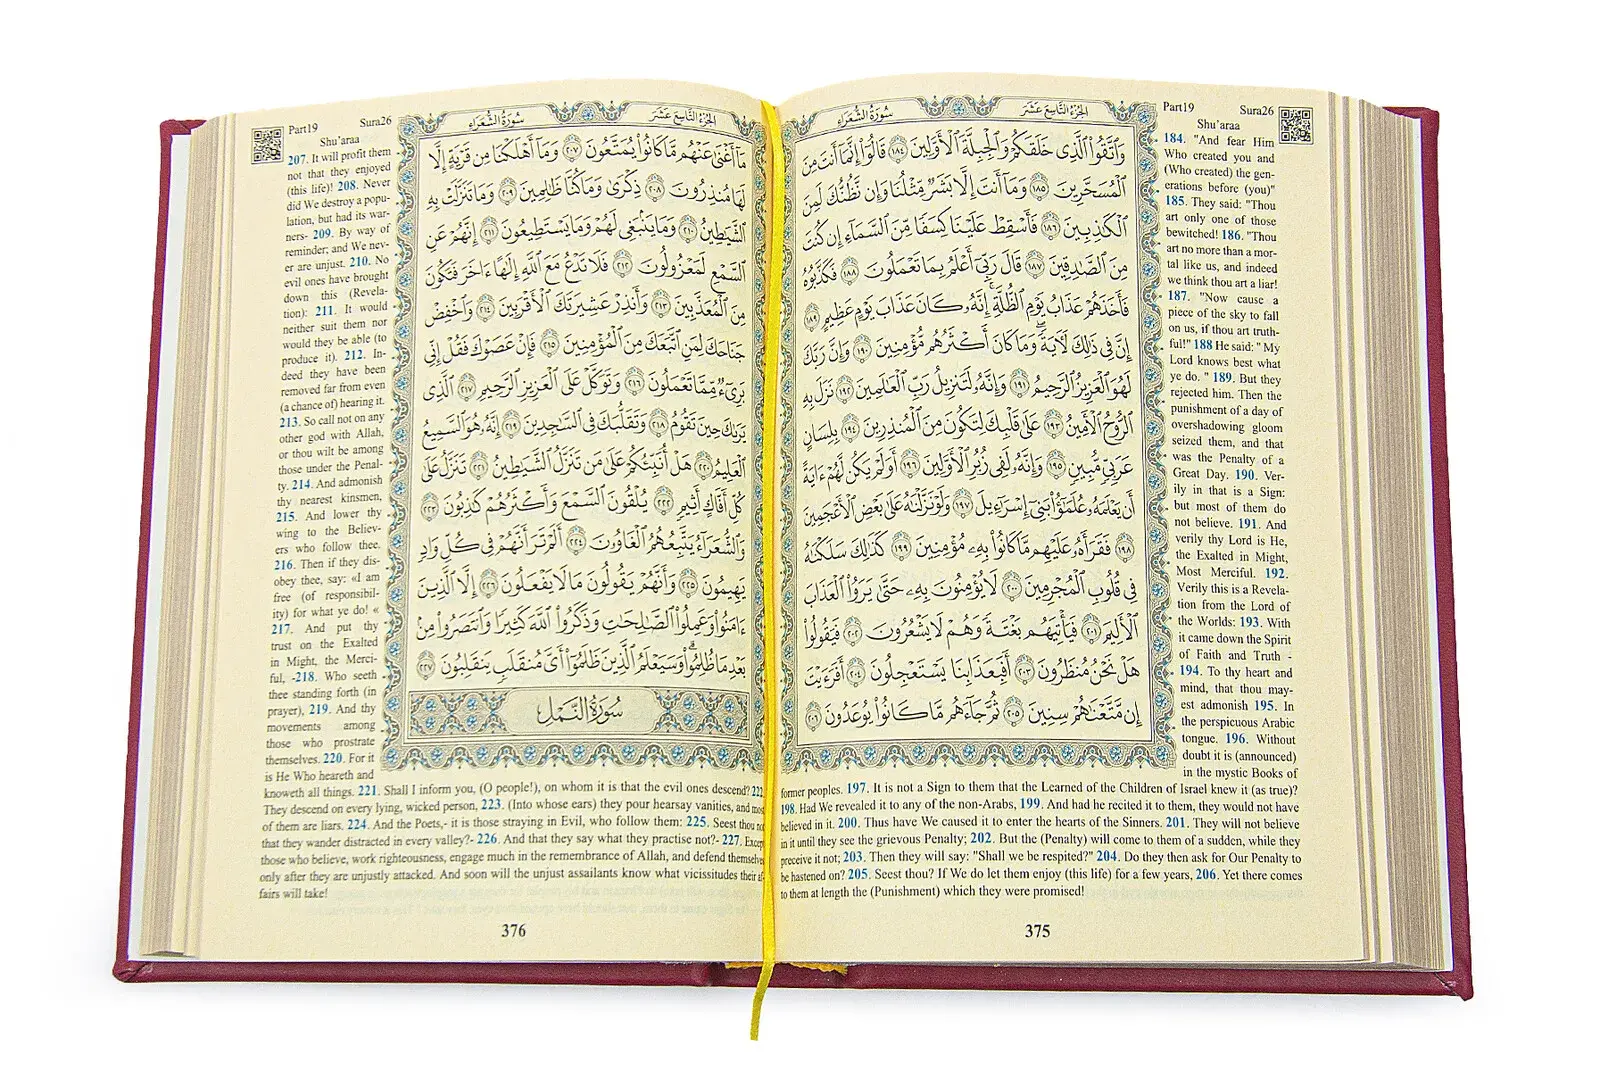 الجُزْءُ التَّاسِعَ عَشَرَ
سُورَةُ الشُّعَرَاءِ
وَٱتَّقُوا۟ ٱلَّذِى خَلَقَكُمْ وَٱلْجِبِلَّةَ ٱلْأَوَّلِينَ ١٨٤ قَالُوٓا۟ إِنَّمَآ أَنتَ مِنَ
ٱلْمُسَحَّرِينَ ١٨٥ وَمَآ أَنتَ إِلَّا بَشَرٌ مِّثْلُنَا وَإِن نَّظُنُّكَ لَمِنَ
ٱلْكَـٰذِبِينَ ١٨٦ فَأَسْقِطْ عَلَيْنَا كِسَفًا مِّنَ ٱلسَّمَآءِ إِن كُنتَ
مِنَ ٱلصَّـٰدِقِينَ ١٨٧ قَالَ رَبِّىٓ أَعْلَمُ بِمَا تَعْمَلُونَ ١٨٨ فَكَذَّبُوهُ
فَأَخَذَهُمْ عَذَابُ يَوْمِ ٱلظُّلَّةِ ۚ إِنَّهُۥ كَانَ عَذَابَ يَوْمٍ عَظِيمٍ ١٨٩
إِنَّ فِى ذَٰلِكَ لَـَٔايَةً ۖ وَمَا كَانَ أَكْثَرُهُم مُّؤْمِنِينَ ١٩٠ وَإِنَّ رَبَّكَ
لَهُوَ ٱلْعَزِيزُ ٱلرَّحِيمُ ١٩١ وَإِنَّهُۥ لَتَنزِيلُ رَبِّ ٱلْعَـٰلَمِينَ ١٩٢ نَزَلَ بِهِ
ٱلرُّوحُ ٱلْأَمِينُ ١٩٣ عَلَىٰ قَلْبِكَ لِتَكُونَ مِنَ ٱلْمُنذِرِينَ ١٩٤ بِلِسَانٍ
عَرَبِىٍّ مُّبِينٍ ١٩٥ وَإِنَّهُۥ لَفِى زُبُرِ ٱلْأَوَّلِينَ ١٩٦ أَوَلَمْ يَكُن لَّهُمْ ءَايَةً
أَن يَعْلَمَهُۥ عُلَمَـٰٓؤُا۟ بَنِىٓ إِسْرَٰٓءِيلَ ١٩٧ وَلَوْ نَزَّلْنَـٰهُ عَلَىٰ بَعْضِ ٱلْأَعْجَمِينَ
١٩٨ فَقَرَأَهُۥ عَلَيْهِم مَّا كَانُوا۟ بِهِۦ مُؤْمِنِينَ ١٩٩ كَذَٰلِكَ سَلَكْنَـٰهُ
فِى قُلُوبِ ٱلْمُجْرِمِينَ ٢٠٠ لَا يُؤْمِنُونَ بِهِۦ حَتَّىٰ يَرَوُا۟ ٱلْعَذَابَ
ٱلْأَلِيمَ ٢٠١ فَيَأْتِيَهُم بَغْتَةً وَهُمْ لَا يَشْعُرُونَ ٢٠٢ فَيَقُولُوا۟
هَلْ نَحْنُ مُنظَرُونَ ٢٠٣ أَفَبِعَذَابِنَا يَسْتَعْجِلُونَ ٢٠٤ أَفَرَءَيْتَ
إِن مَّتَّعْنَـٰهُمْ سِنِينَ ٢٠٥ ثُمَّ جَآءَهُم مَّا كَانُوا۟ يُوعَدُونَ ٢٠٦
Part19 Sura26
Shu'araa
184. "And fear Him
Who created you and
(Who created) the gen-
erations before (you)"
185. They said: "Thou
art only one of those
bewitched! 186. "Thou
art no more than a mor-
tal like us, and indeed
we think thou art a liar!
187. "Now cause a
piece of the sky to fall
on us, if thou art truth-
ful!" 188 He said: " My
Lord knows best what
ye do. " 189. But they
rejected him. Then the
punishment of a day of
overshadowing gloom
seized them, and that
was the Penalty of a
Great Day. 190. Ver-
ily in that is a Sign:
but most of them do
not believe. 191. And
verily thy Lord is He,
the Exalted in Might,
Most Merciful. 192.
Verily this is a Revela-
tion from the Lord of
the Worlds: 193. With
it came down the Spirit
of Faith and Truth -
194. To thy heart and
mind, that thou may-
est admonish 195. In
the perspicuous Arabic
tongue. 196. Without
doubt it is (announced)
in the mystic Books of
former peoples. 197. It is not a Sign to them that the Learned of the Children of Israel knew it (as true)?
198. Had We revealed it to any of the non-Arabs, 199. And had he recited it to them, they would not have
believed in it. 200. Thus have We caused it to enter the hearts of the Sinners. 201. They will not believe
in it until they see the grievous Penalty; 202. But the (Penalty) will come to them of a sudden, while they
preceive it not; 203. Then they will say: "Shall we be respited?" 204. Do they then ask for Our Penalty to
be hastened on? 205. Seest thou? If We do let them enjoy (this life) for a few years, 206. Yet there comes
to them at length the (Punishment) which they were promised!
375
الجُزْءُ التَّاسِعَ عَشَرَ
سُورَةُ الشُّعَرَاءِ
مَآ أَغْنَىٰ عَنْهُم مَّا كَانُوا۟ يُمَتَّعُونَ ٢٠٧ وَمَآ أَهْلَكْنَا مِن قَرْيَةٍ إِلَّا
لَهَا مُنذِرُونَ ٢٠٨ ذِكْرَىٰ وَمَا كُنَّا ظَـٰلِمِينَ ٢٠٩ وَمَا تَنَزَّلَتْ بِهِ
ٱلشَّيَـٰطِينُ ٢١٠ وَمَا يَنۢبَغِى لَهُمْ وَمَا يَسْتَطِيعُونَ ٢١١ إِنَّهُمْ عَنِ
ٱلسَّمْعِ لَمَعْزُولُونَ ٢١٢ فَلَا تَدْعُ مَعَ ٱللَّهِ إِلَـٰهًا ءَاخَرَ فَتَكُونَ
مِنَ ٱلْمُعَذَّبِينَ ٢١٣ وَأَنذِرْ عَشِيرَتَكَ ٱلْأَقْرَبِينَ ٢١٤ وَٱخْفِضْ
جَنَاحَكَ لِمَنِ ٱتَّبَعَكَ مِنَ ٱلْمُؤْمِنِينَ ٢١٥ فَإِنْ عَصَوْكَ فَقُلْ إِنِّى
بَرِىٓءٌ مِّمَّا تَعْمَلُونَ ٢١٦ وَتَوَكَّلْ عَلَى ٱلْعَزِيزِ ٱلرَّحِيمِ ٢١٧ ٱلَّذِى
يَرَىٰكَ حِينَ تَقُومُ ٢١٨ وَتَقَلُّبَكَ فِى ٱلسَّـٰجِدِينَ ٢١٩ إِنَّهُۥ هُوَ ٱلسَّمِيعُ
ٱلْعَلِيمُ ٢٢٠ هَلْ أُنَبِّئُكُمْ عَلَىٰ مَن تَنَزَّلُ ٱلشَّيَـٰطِينُ ٢٢١ تَنَزَّلُ عَلَىٰ
كُلِّ أَفَّاكٍ أَثِيمٍ ٢٢٢ يُلْقُونَ ٱلسَّمْعَ وَأَكْثَرُهُمْ كَـٰذِبُونَ ٢٢٣
وَٱلشُّعَرَآءُ يَتَّبِعُهُمُ ٱلْغَاوُۥنَ ٢٢٤ أَلَمْ تَرَ أَنَّهُمْ فِى كُلِّ وَادٍ
يَهِيمُونَ ٢٢٥ وَأَنَّهُمْ يَقُولُونَ مَا لَا يَفْعَلُونَ ٢٢٦ إِلَّا ٱلَّذِينَ
ءَامَنُوا۟ وَعَمِلُوا۟ ٱلصَّـٰلِحَـٰتِ وَذَكَرُوا۟ ٱللَّهَ كَثِيرًا وَٱنتَصَرُوا۟ مِنۢ
بَعْدِ مَا ظُلِمُوا۟ ۗ وَسَيَعْلَمُ ٱلَّذِينَ ظَلَمُوٓا۟ أَىَّ مُنقَلَبٍ يَنقَلِبُونَ ٢٢٧
سُورَةُ النَّمْلِ
Part19 Sura26
Shu'araa
207. It will profit them
not that they enjoyed
(this life)! 208. Never
did We destroy a popu-
lation, but had its war-
ners- 209. By way of
reminder; and We nev-
er are unjust. 210. No
evil ones have brought
down this (Revela-
tion): 211. It would
neither suit them nor
would they be able (to
produce it). 212. In-
deed they have been
removed far from even
(a chance of) hearing it.
213. So call not on any
other god with Allah,
or thou wilt be among
those under the Penal-
ty. 214. And admonish
thy nearest kinsmen,
215. And lower thy
wing to the Believ-
ers who follow thee.
216. Then if they dis-
obey thee, say: «I am
free (of responsibil-
ity) for what ye do! «
217. And put thy
trust on the Exalted
in Might, the Merci-
ful, -218. Who seeth
thee standing forth (in
prayer), 219. And thy
movements among
those who prostrate
themselves. 220. For it
is He Who heareth and
knoweth all things. 221. Shall I inform you, (O people!), on whom it is that the evil ones descend? 222.
They descend on every lying, wicked person, 223. (Into whose ears) they pour hearsay vanities, and most
of them are liars. 224. And the Poets,- it is those straying in Evil, who follow them: 225. Seest thou not
that they wander distracted in every valley?- 226. And that they say what they practise not?- 227. Except
those who believe, work righteousness, engage much in the remembrance of Allah, and defend themselves
only after they are unjustly attacked. And soon will the unjust assailants know what vicissitudes their af-
fairs will take!
376